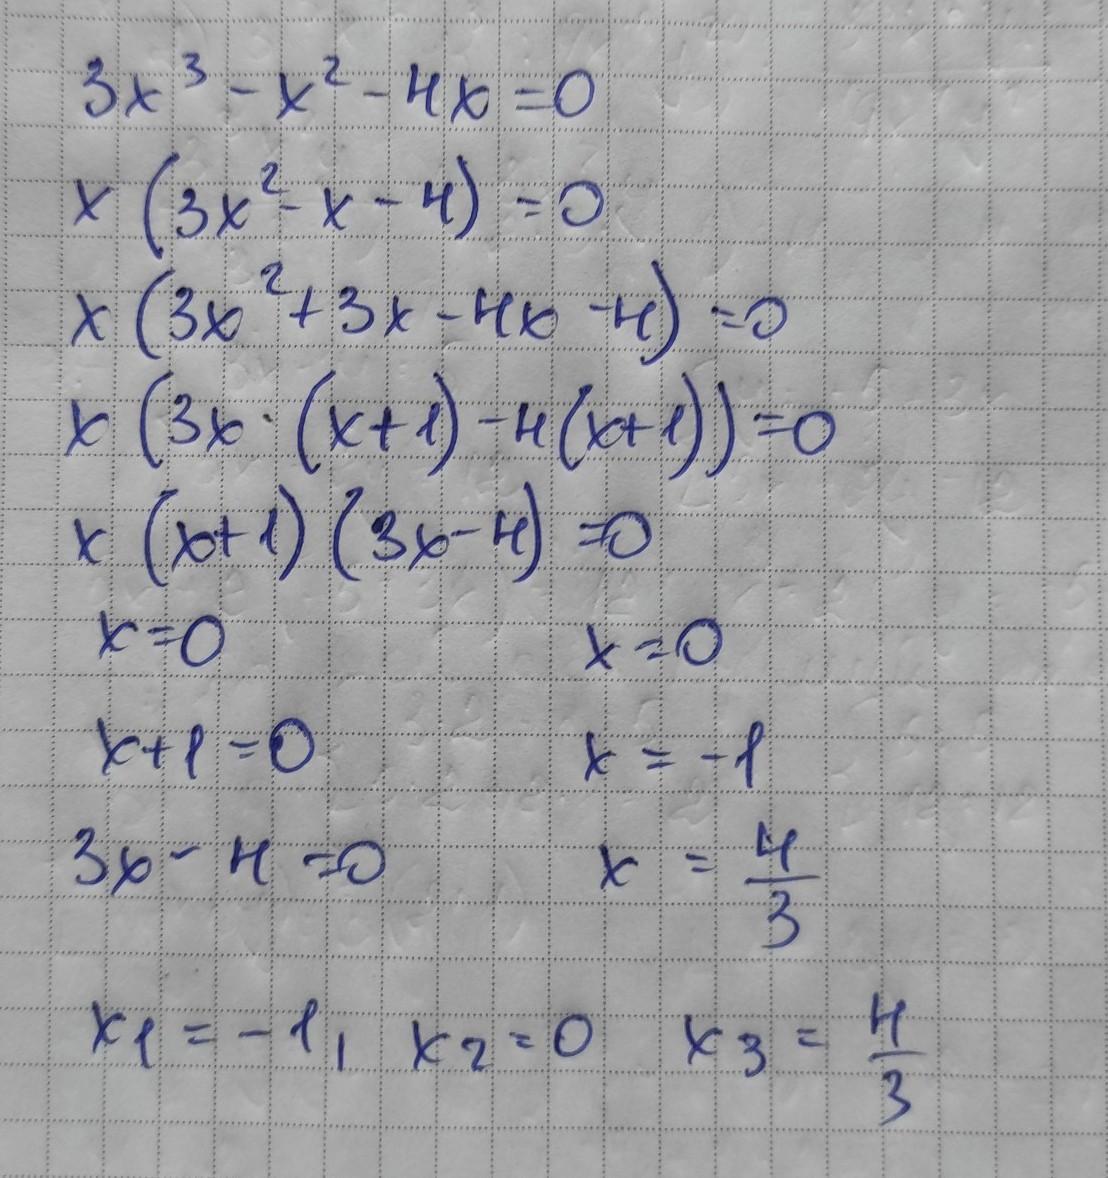 3x³ - x² - 4x = 0
x (3x² - x - 4) = 0
x (3x² + 3x - 4x - 4) = 0
x (3x · (x+1) - 4(x+1)) = 0
x (x+1) (3x - 4) = 0
x = 0 x = 0
x+1 = 0 x = -1
3x - 4 = 0 x = 4/3
x₁ = -1, x₂ = 0 x₃ = 4/3